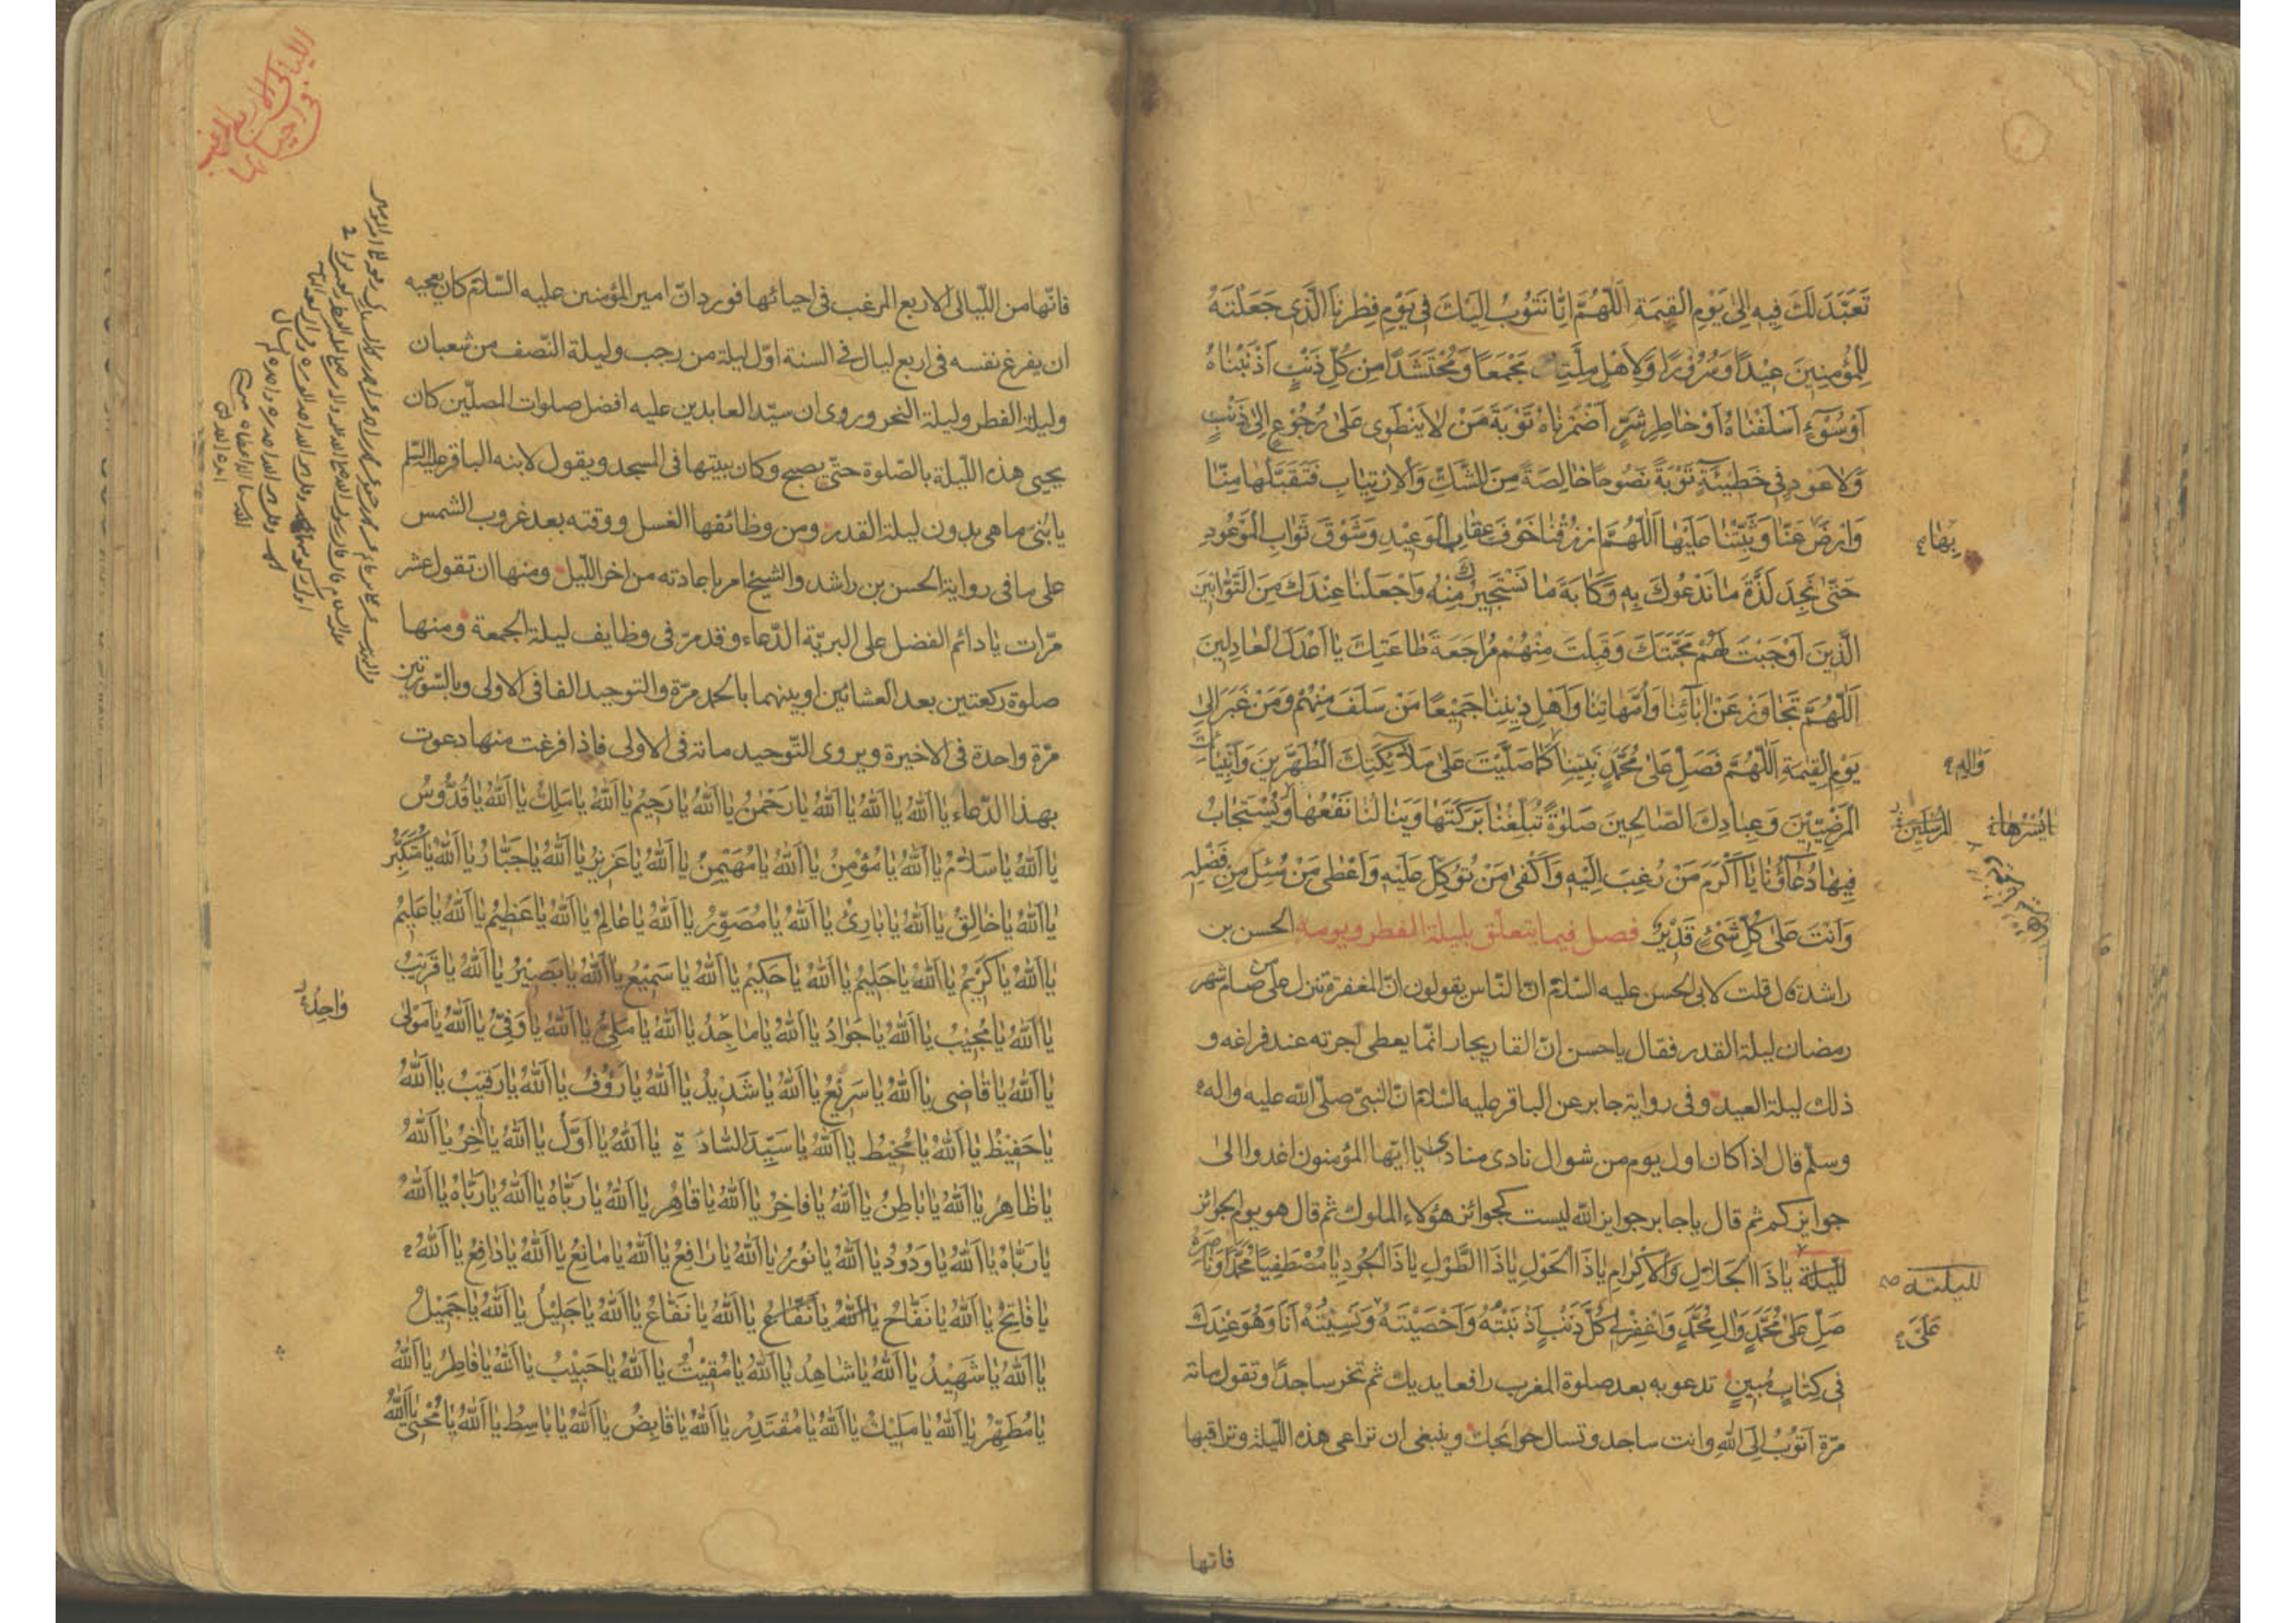 تَعَبَّدَ لَكَ فِيهِ اِلىٰ يَوْمِ الْقِيمَةِ اَللّهُمَّ اِنَّا نَتُوبُ اِلَيْكَ فِي يَوْمِ فِطْرِنَا الَّذِي جَعَلْتَهُ
لِلْمُؤْمِنِينَ عِيْدًا وَسُرُورًا وَلِاَهْلِ مِلَّتِكَ مَجْمَعًا وَمُحْتَشَدًا مِنْ كُلِّ ذَنْبٍ اَذْنَبْنَاهُ
اَوْ سُوْءٍ اَسْلَفْنَاهُ اَوْ خَاطِرِ شَرٍّ اَضْمَرْنَاهُ تَوْبَةَ مَنْ لَا يَنْطَوِي عَلىٰ رُجُوعٍ اِلىٰ ذَنْبٍ
وَلَا عَوْدٍ فِي خَطِيْئَةٍ تَوْبَةً نَصُوحًا خَالِصَةً مِنَ الشَّكِّ وَالْاِرْتِيَابِ فَتَقَبَّلْهَا مِنَّا
وَارْضَ عَنَّا وَثَبِّتْنَا عَلَيْهَا اَللّهُمَّ ارْزُقْنَا خَوْفَ عِقَابِ الْوَعِيْدِ وَشَوْقَ ثَوَابِ الْمَوْعُودِ
بها
حَتّىٰ نَجِدَ لَذَّةَ مَا نَدْعُوكَ بِهِ وَكَابَةَ مَا نَسْتَجِيرُكَ مِنْهُ وَاجْعَلْنَا عِنْدَكَ مِنَ التَّوَّابِينَ
الَّذِينَ اَوْجَبْتَ لَهُمْ مَحَبَّتَكَ وَقَبِلْتَ مِنْهُمْ مُرَاجَعَةَ طَاعَتِكَ يَا اَعْدَلَ الْعَادِلِينَ
اَللّهُمَّ تَجَاوَزْ عَنْ اٰبَائِنَا وَاُمَّهَاتِنَا وَاَهْلِ دِيْنِنَا جَمِيْعًا مَنْ سَلَفَ مِنْهُمْ وَمَنْ غَبَرَ اِلىٰ
يَوْمِ الْقِيمَةِ اَللّهُمَّ فَصَلِّ عَلىٰ مُحَمَّدٍ نَبِيِّنَا كَمَا صَلَّيْتَ عَلىٰ مَلَائِكَتِكَ الْمُطَهَّرِينَ وَاَنْبِيَائِكَ
وَاٰلِهِ
الْمَرْضِيِّينَ وَعِبَادِكَ الصَّالِحِينَ صَلٰوةً تُبَلِّغُنَا بَرَكَتَهَا وَيَنَالُنَا نَفْعُهَا وَيُسْتَجَابُ
المرسلين
فِيْهَا دُعَاؤُنَا يَا اَكْرَمَ مَنْ رُغِبَ اِلَيْهِ وَاَكْفىٰ مَنْ تُوُكِّلَ عَلَيْهِ وَاَعْطىٰ مَنْ سُئِلَ مِنْ فَضْلِهِ
وَاَنْتَ عَلىٰ كُلِّ شَيْءٍ قَدِيْرٌ فصل فيما يتعلّق بليلة الفطر ويومه الحسن بن
راشد قال قلت لابى الحسن عليه السّلام انّ النّاس يقولون انّ المغفرة تنزل على من صام شهر
رمضان ليلة القدر فقال يا حسن انّ القاريجار انّما يعطى اجرته عند فراغه و
ذلك ليلة العيد وفى رواية جابر عن الباقر عليه السّلام انّ النّبىّ صلّى الله عليه واله
وسلّم قال اذا كان اول يوم من شوال نادى منادى يا ايّها المؤمنون اغدوا الى
جوايزكم ثم قال يا جابر جوايز الله ليست كجوائز هؤلاء الملوك ثم قال هو يوم الجوائز
لليلة يَا ذَا الْجَلَالِ وَالْاِكْرَامِ يَا ذَا الْحَوْلِ يَا ذَا الطَّوْلِ يَا ذَا الْجُودِ يَا مُصْطَفِيًا مُحَمَّدًا وَنَاصِرَهُ
لليلته
صَلِّ عَلىٰ مُحَمَّدٍ وَاٰلِ مُحَمَّدٍ وَاغْفِرْ لِي كُلَّ ذَنْبٍ اَذْنَبْتُهُ وَاَحْصَيْتَهُ وَنَسِيْتُهُ اَنَا وَهُوَ عِنْدَكَ
عَلَيَّ
فِي كِتَابٍ مُبِينٍ تدعو به بعد صلوة المغرب رافعا يديك ثم تخر ساجدًا وتقول مائة
مرّة اَتُوْبُ اِلَى اللهِ وانت ساجد وتسال حوائجك وينبغى ان تراعى هذه اللّيلة وتراقبها
فانها
الليالى الاربع المرغب
فى احيائها
فانّها من اللّيالى الاربع المرغب فى احيائها فورد انّ امير المؤمنين عليه السّلام كان يعجبه
ان يفرغ نفسه فى اربع ليال فى السنة اوّل ليلة من رجب وليلة النّصف من شعبان
وليلة الفطر وليلة النحر وروى ان سيّد العابدين عليه افضل صلوات المصلّين كان
يحيى هذه اللّيلة بالصّلوة حتّى يصبح وكان يبيتها فى المسجد ويقول لابنه الباقر عليه السّلم
يا بُنىّ ما هى بدون ليلة القدر ومن وظائفها الغسل ووقته بعد غروب الشمس
على ما فى رواية الحسن بن راشد والشيخ امر باعادته من اخر اللّيل ومنها ان تقول عشر
مرّات يا دائم الفضل على البريّة الدّعاء وقد مرّ فى وظايف ليلة الجمعة ومنها
صلوة ركعتين بعد العشائين او بينهما بالحمد مرّة والتوحيد الفا فى الاولى وبالسّورتين
مرّة واحدة فى الاخيرة ويروى التّوحيد مائة فى الاولى فاذا فرغت منها دعوت
بهذا الدّعاء يَا اَللهُ يَا اَللهُ يَا اَللهُ يَا رَحْمٰنُ يَا اَللهُ يَا رَحِيْمُ يَا اَللهُ يَا مَلِكُ يَا اَللهُ يَا قُدُّوْسُ
يَا اَللهُ يَا سَلَامُ يَا اَللهُ يَا مُؤْمِنُ يَا اَللهُ يَا مُهَيْمِنُ يَا اَللهُ يَا عَزِيْزُ يَا اَللهُ يَا جَبَّارُ يَا اَللهُ يَا مُتَكَبِّرُ
يَا اَللهُ يَا خَالِقُ يَا اَللهُ يَا بَارِئُ يَا اَللهُ يَا مُصَوِّرُ يَا اَللهُ يَا عَالِمُ يَا اَللهُ يَا عَظِيْمُ يَا اَللهُ يَا عَلِيْمُ
يَا اَللهُ يَا كَرِيْمُ يَا اَللهُ يَا حَلِيْمُ يَا اَللهُ يَا حَكِيْمُ يَا اَللهُ يَا سَمِيْعُ يَا اَللهُ يَا بَصِيْرُ يَا اَللهُ يَا قَرِيْبُ
يَا اَللهُ يَا مُجِيْبُ يَا اَللهُ يَا جَوَادُ يَا اَللهُ يَا مَاجِدُ يَا اَللهُ يَا مَلِيُّ يَا اَللهُ يَا وَفِيُّ يَا اَللهُ يَا مَوْلىٰ
وَاجِدُ
يَا اَللهُ يَا قَاضِي يَا اَللهُ يَا سَرِيْعُ يَا اَللهُ يَا شَدِيْدُ يَا اَللهُ يَا رَؤُفُ يَا اَللهُ يَا رَقِيْبُ يَا اَللهُ
يَا حَفِيْظُ يَا اَللهُ يَا مُحِيْطُ يَا اَللهُ يَا سَيِّدَ السَّادَةِ يَا اَللهُ يَا اَوَّلُ يَا اَللهُ يَا اٰخِرُ يَا اَللهُ
يَا ظَاهِرُ يَا اَللهُ يَا بَاطِنُ يَا اَللهُ يَا فَاخِرُ يَا اَللهُ يَا قَاهِرُ يَا اَللهُ يَا رَبَّاهُ يَا اَللهُ يَا رَبَّاهُ يَا اَللهُ
يَا رَبَّاهُ يَا اَللهُ يَا وَدُوْدُ يَا اَللهُ يَا نُوْرُ يَا اَللهُ يَا رَافِعُ يَا اَللهُ يَا مَانِعُ يَا اَللهُ يَا دَافِعُ يَا اَللهُ
يَا فَاتِحُ يَا اَللهُ يَا نَفَّاحُ يَا اَللهُ يَا نَفَّاعُ يَا اَللهُ يَا جَلِيْلُ يَا اَللهُ يَا جَمِيْلُ
يَا اَللهُ يَا شَهِيْدُ يَا اَللهُ يَا شَاهِدُ يَا اَللهُ يَا مُقِيْتُ يَا اَللهُ يَا حَبِيْبُ يَا اَللهُ يَا فَاطِرُ يَا اَللهُ
يَا مُطَهِّرُ يَا اَللهُ يَا مَلِيْكُ يَا اَللهُ يَا مُقْتَدِرُ يَا اَللهُ يَا قَابِضُ يَا اَللهُ يَا بَاسِطُ يَا اَللهُ يَا مُحْيِي يَا اَللهُ